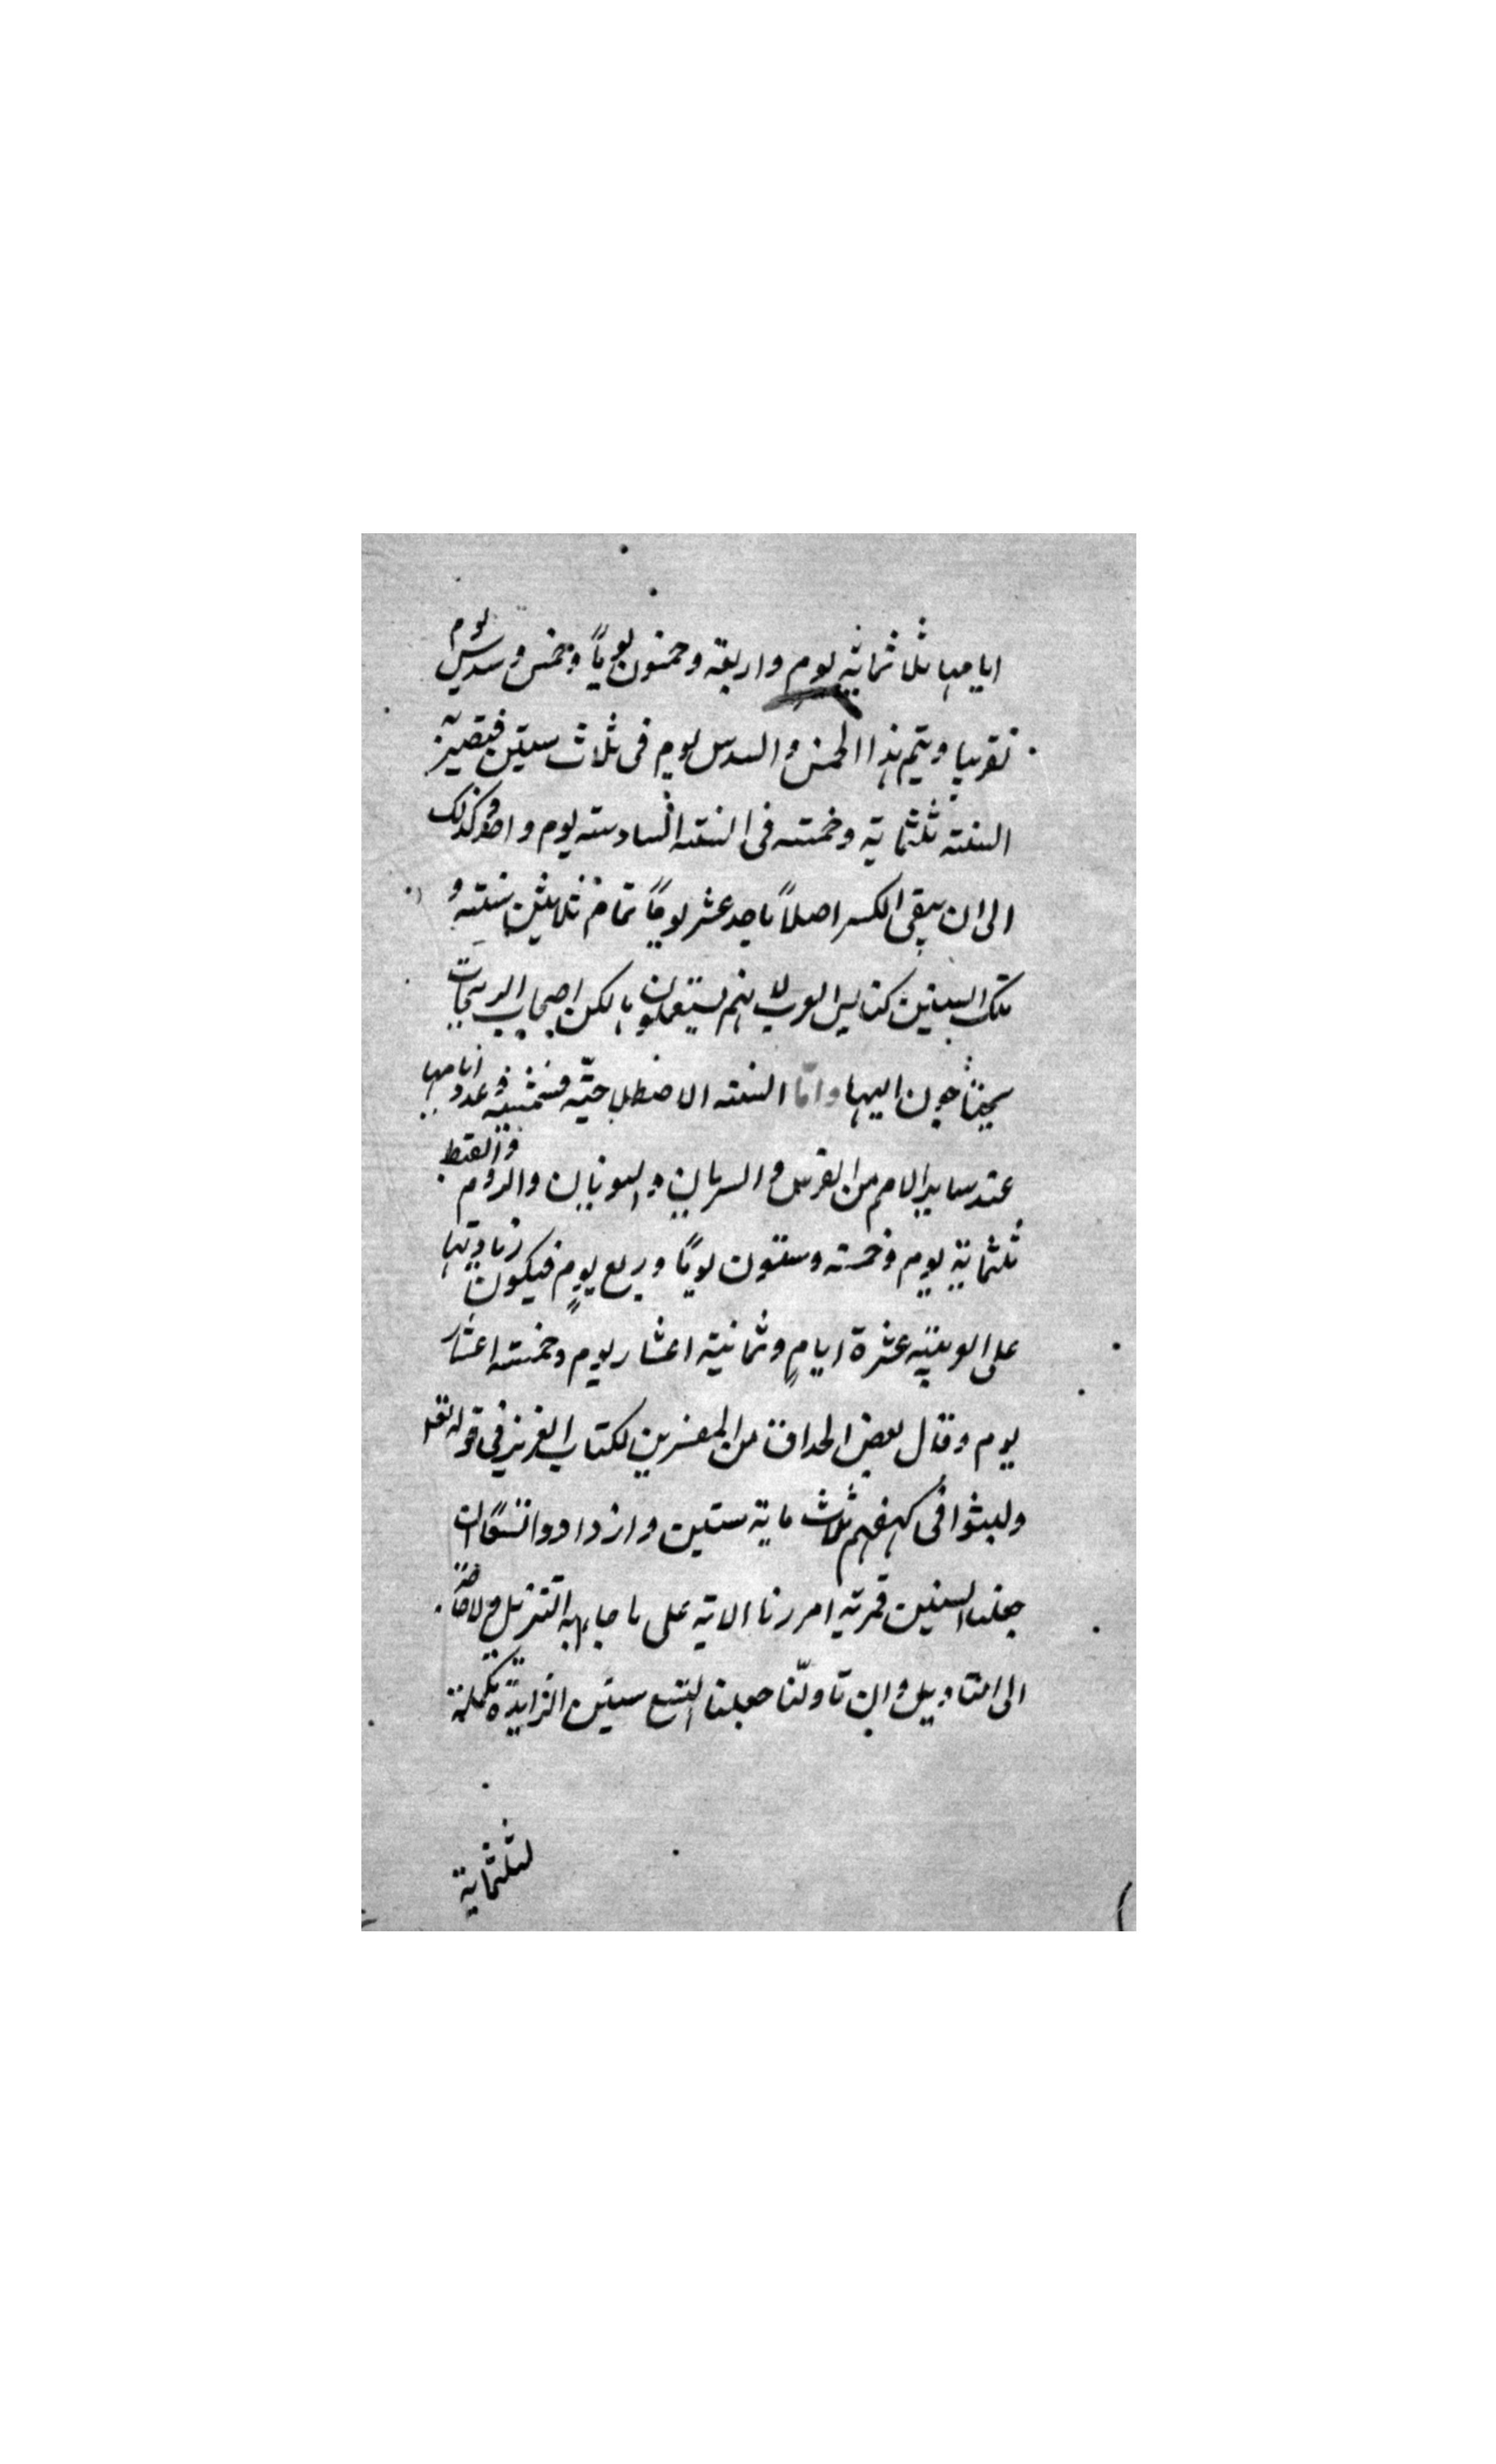 ايامها ثلاثمائة يوم واربعة وخمسون يوماً وخمس وسدس يوم
تقريبا ويتم هذا الخمس والسدس يوم فى ثلاث سنين فتصير
السنة ثلثماية وخمسة فى السنة السادسة يوم واحد وكذلك
الى ان يبقى الكسر اصلاً باحد عشر يوماً تمام ثلاثين سنة و
تلك السنين كبايس العرب لا انهم يستعملونها لكن اصحاب الزيجات
يحتاجون اليها وامّا السنة الاصطلاحيّة فشمسية وعدد ايامها
عند ساير الامم من الفرس والسريان واليونان والروم والقبط
ثلثماية يوم وخمسة وستون يوماً وربع يومٍ فيكون زيادتها
على العربية عشرة ايامٍ وثمانية اعشار يوم وخمسة اعشار
يوم وقال بعض الحذاق من المفسرين لكتاب العزيز فى قوله تعلى
ولبثوا فى كهفهم ثلاث ماية سنين وازدادوا تسعًا ان
جعلنا السنين قمرية امررنا الاية على ما جاء به التنزيل ولا حاجة
الى التاويل وان تاولّنا جعلنا التسع سنين الزايدة تكملة
لثلثماية